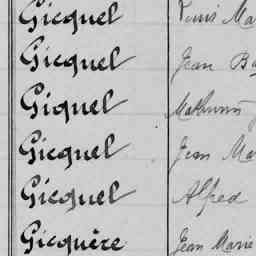 Gicquel Louis Ma
Gicquel Jean Ba
Giquel Mathurin
Gicquel Jean Ma
Gicquel Alfred
Gicquère Jean Marie